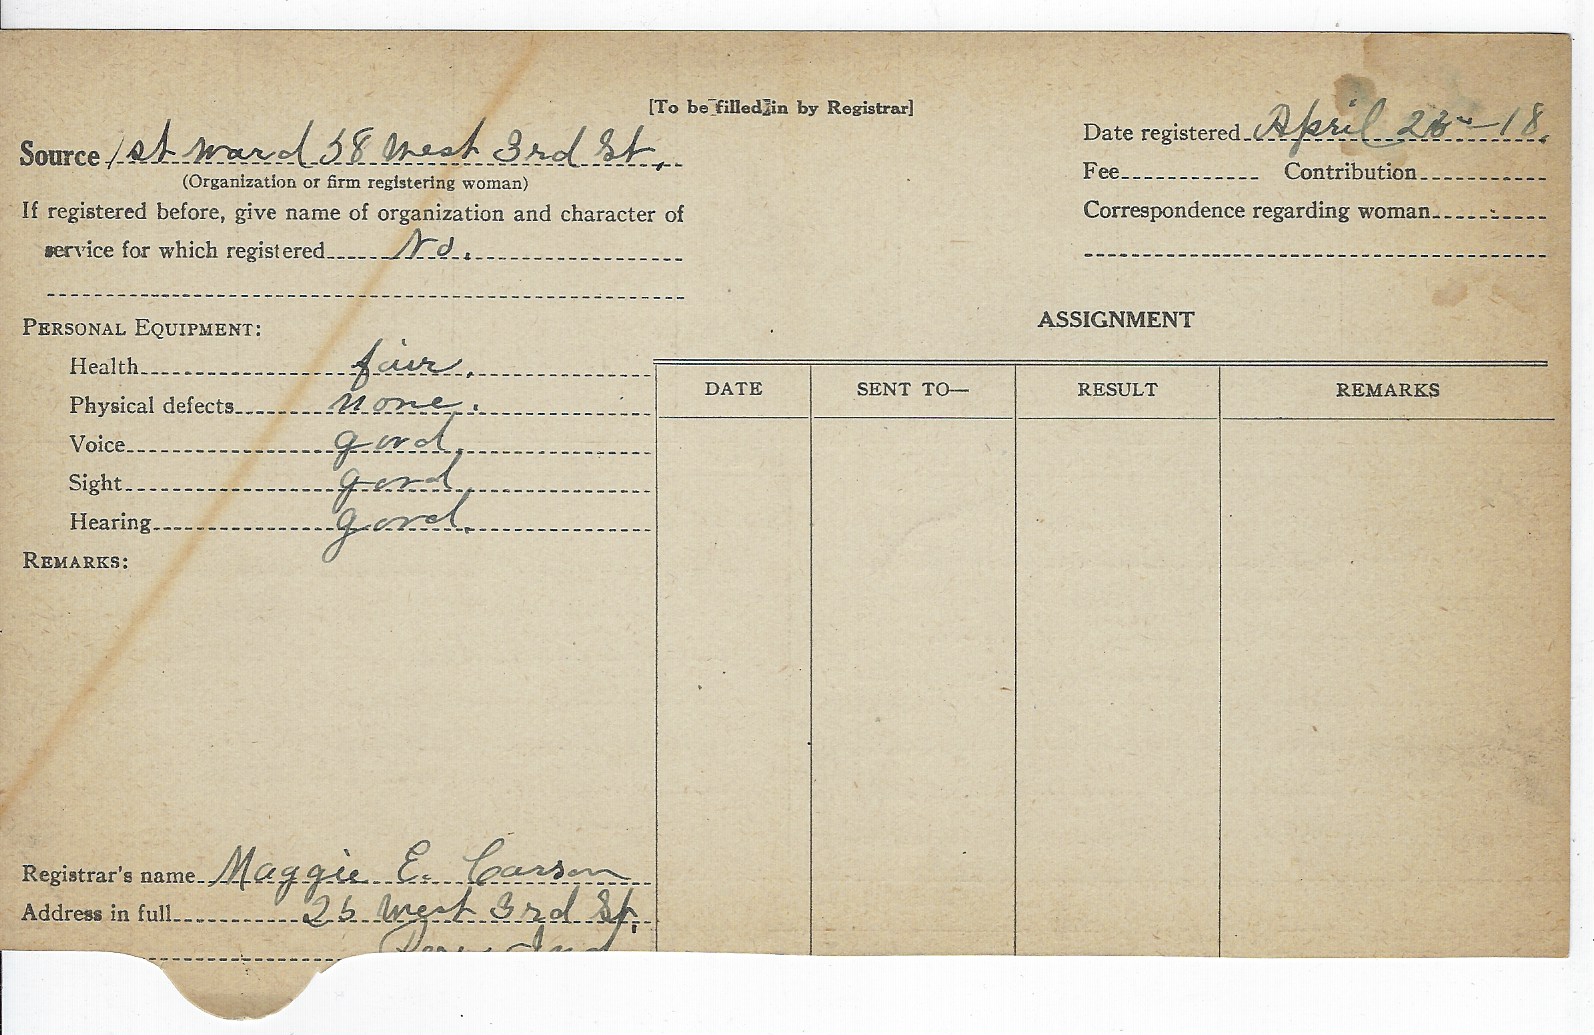 [To be filled in by Registrar]
Source 1st Ward 58 West 3rd St.
(Organization or firm registering woman)
If registered before, give name of organization and character of
service for which registered No.
Date registered April -18.
Fee Contribution
Correspondence regarding woman
PERSONAL EQUIPMENT:
Health fair.
Physical defects none.
Voice good.
Sight good
Hearing good.
REMARKS:
ASSIGNMENT
DATE SENT TO— RESULT REMARKS
Registrar's name Maggie E. Carson
Address in full West 3rd St.
Ind